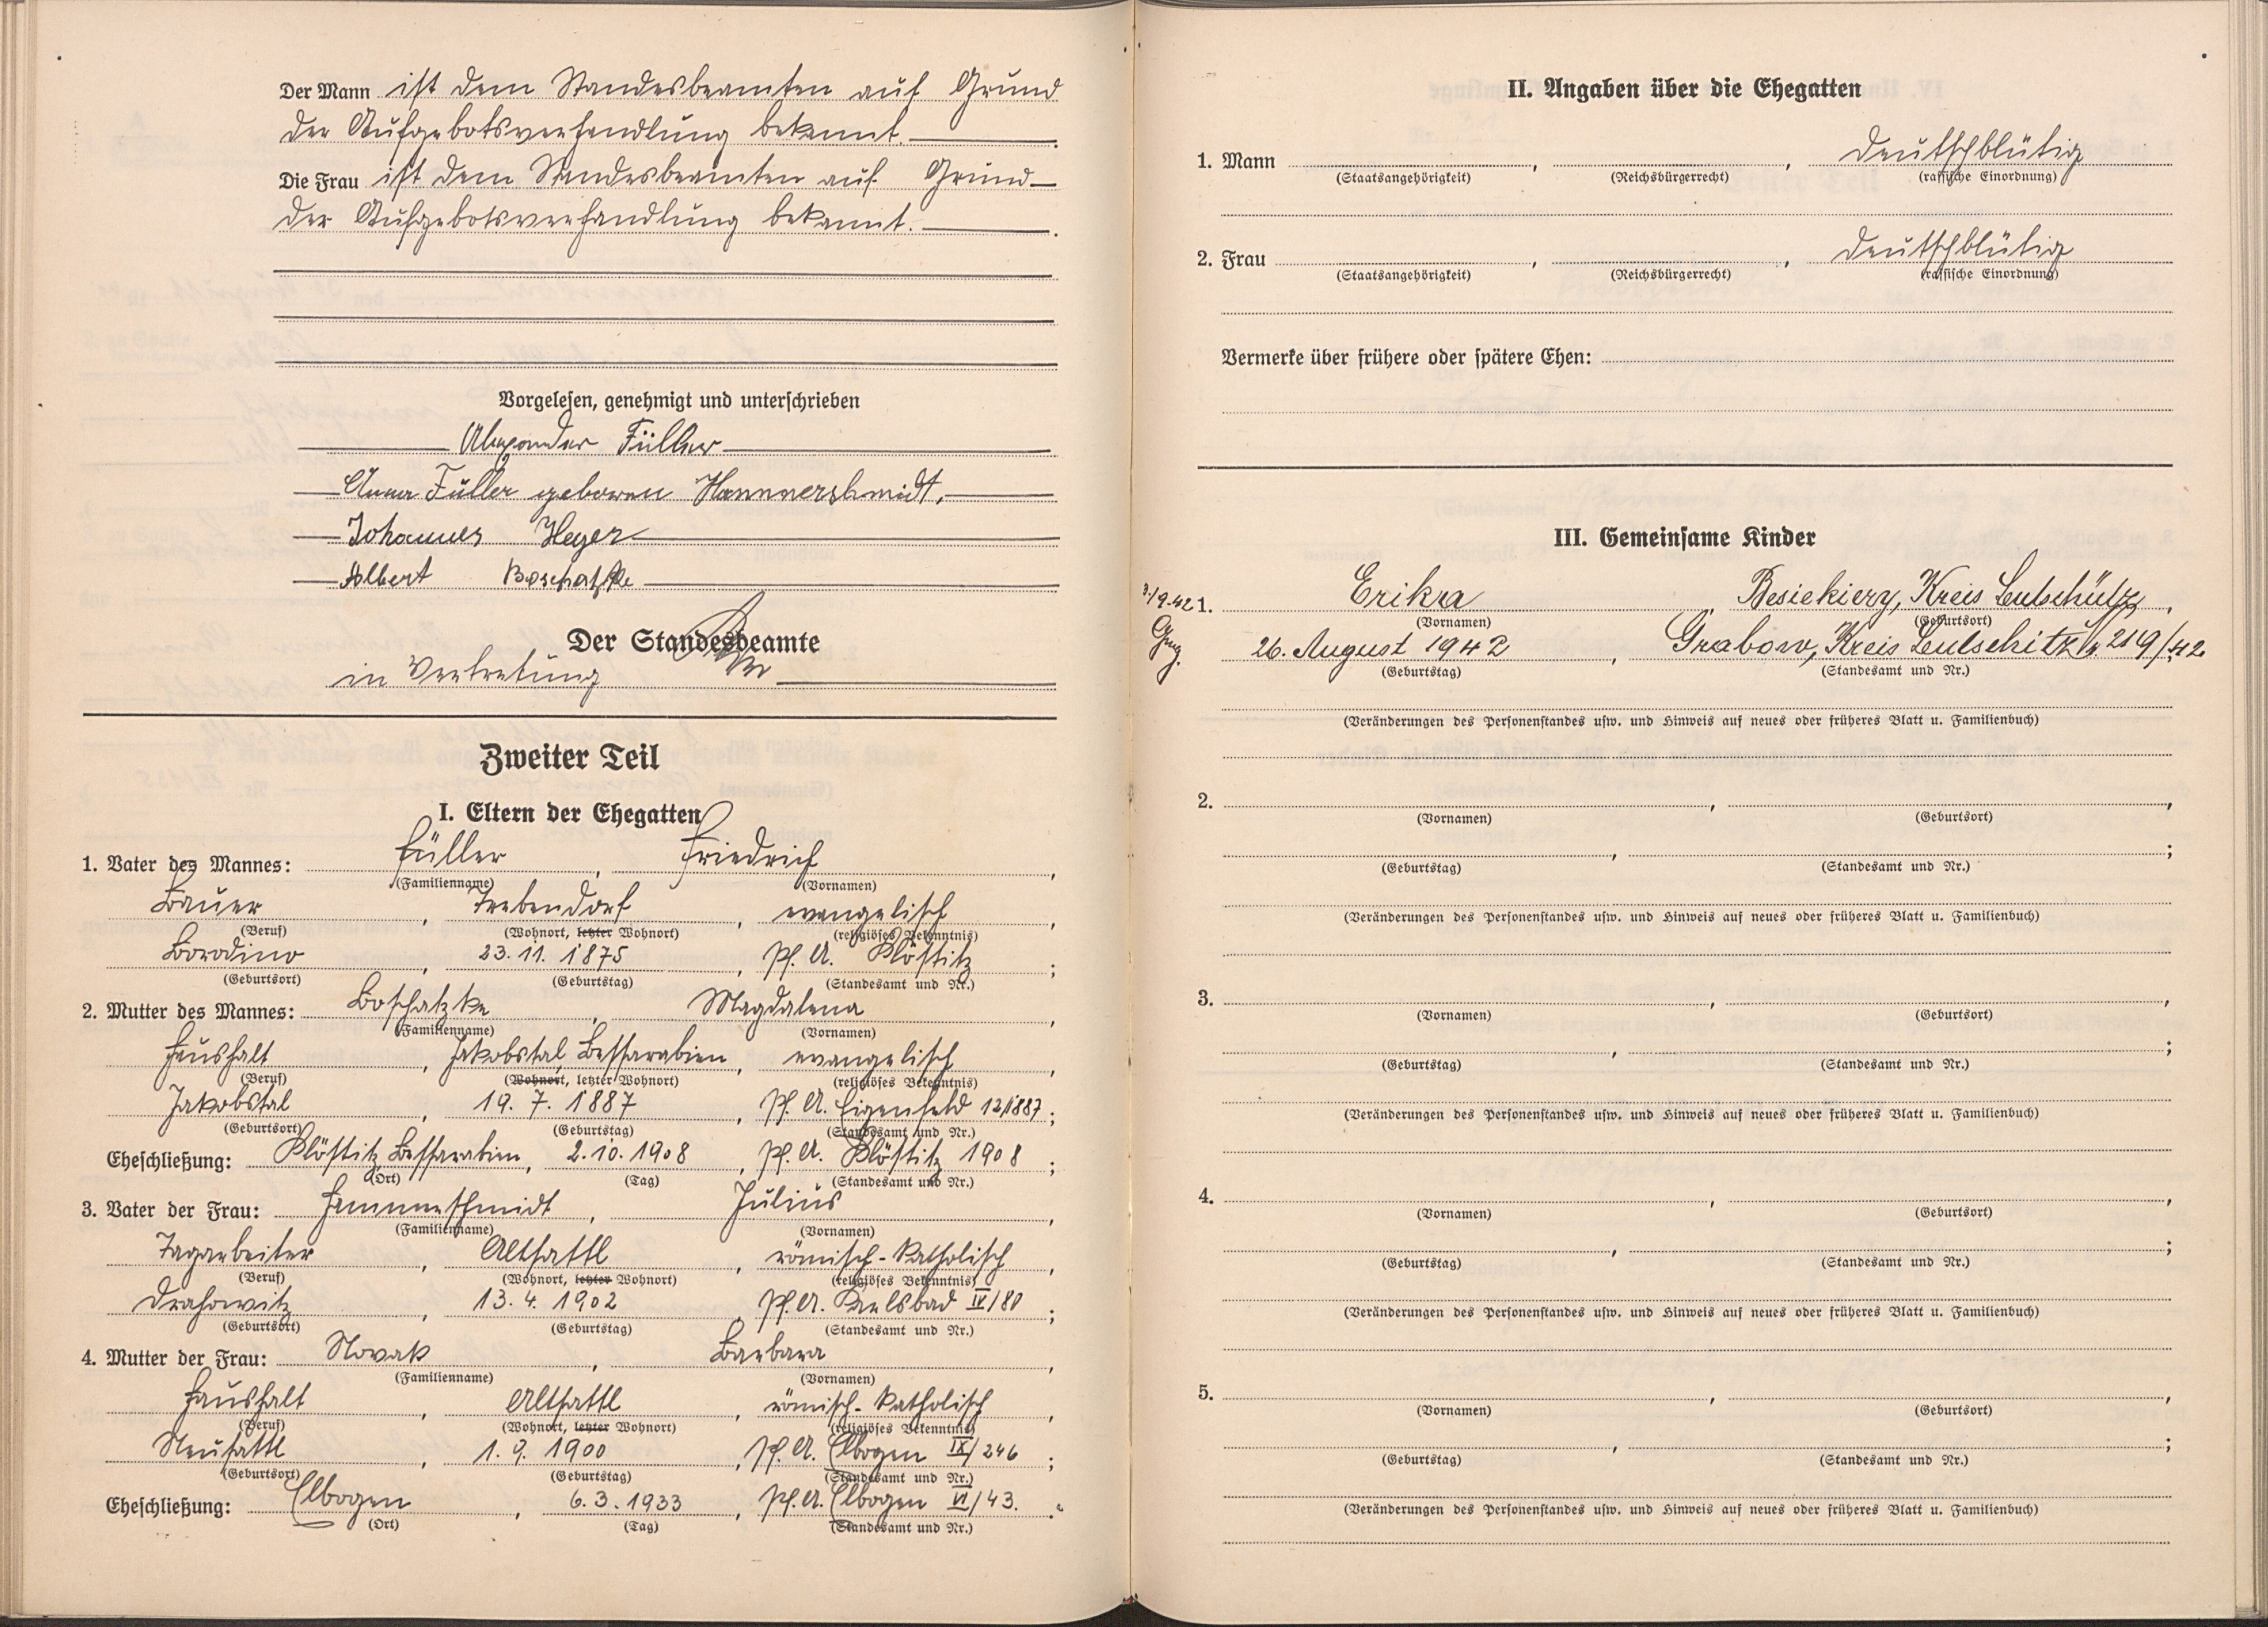 Der Mann ist dem Standesbeamten auf Grund
der Aufgebotsverhandlung bekannt.
Die Frau ist dem Standesbeamten auf Grund
der Aufgebotsverhandlung bekannt.
Vorgelesen, genehmigt und unterschrieben
Alexander Füller
Anna Füller geborene Hammerschmidt.
Johannes Heyer
Albert Boschatzke
Der Standesbeamte
in Vertretung
Zweiter Teil
I. Eltern der Ehegatten
1. Vater des Mannes: Füller, Friedrich,
(Familienname) (Vornamen)
Bauer, Trebendorf, evangelisch,
(Beruf) (Wohnort, letzter Wohnort) (religiöses Bekenntnis)
Borodino, 23. 11. 1875, Pf. A. Klöstitz;
(Geburtsort) (Geburtstag) (Standesamt und Nr.)
2. Mutter des Mannes: Boschatzke, Magdalena,
(Familienname) (Vornamen)
Haushalt, Jakobstal, Bessarabien, evangelisch,
(Beruf) (Wohnort, letzter Wohnort) (religiöses Bekenntnis)
Jakobstal, 19. 7. 1887, Pf. A. Eigenfeld 12/1887;
(Geburtsort) (Geburtstag) (Standesamt und Nr.)
Eheschließung: Klöstitz Bessarabien, 2. 10. 1908, Pf. A. Klöstitz 1908;
(Ort) (Tag) (Standesamt und Nr.)
3. Vater der Frau: Hammerschmidt, Julius,
(Familienname) (Vornamen)
Tagarbeiter, Altsattl, römisch-katholisch,
(Beruf) (Wohnort, letzter Wohnort) (religiöses Bekenntnis)
Drahowitz, 13. 4. 1902, Pf. A. Karlsbad IV/80;
(Geburtsort) (Geburtstag) (Standesamt und Nr.)
4. Mutter der Frau: Novak, Barbara,
(Familienname) (Vornamen)
Haushalt, Altsattl, römisch-katholisch,
(Beruf) (Wohnort, letzter Wohnort) (religiöses Bekenntnis)
Neusattl, 1. 9. 1900, Pf. A. Elbogen IX/246;
(Geburtsort) (Geburtstag) (Standesamt und Nr.)
Eheschließung: Elbogen, 6. 3. 1933, Pf. A. Elbogen VI/43.
(Ort) (Tag) (Standesamt und Nr.)
II. Angaben über die Ehegatten
1. Mann , , deutschblütig
(Staatsangehörigkeit) (Reichsbürgerrecht) (rassische Einordnung)
2. Frau , , deutschblütig
(Staatsangehörigkeit) (Reichsbürgerrecht) (rassische Einordnung)
Vermerke über frühere oder spätere Ehen:
III. Gemeinsame Kinder
1. Erika, Besiekiery, Kreis Lentschütz,
(Vornamen) (Geburtsort)
26. August 1942, Grabow, Kreis Lentschitz 219/42
(Geburtstag) (Standesamt und Nr.)
(Veränderungen des Personenstandes usw. und Hinweis auf neues oder früheres Blatt u. Familienbuch)
2. , ,
(Vornamen) (Geburtsort)
, ;
(Geburtstag) (Standesamt und Nr.)
(Veränderungen des Personenstandes usw. und Hinweis auf neues oder früheres Blatt u. Familienbuch)
3. , ,
(Vornamen) (Geburtsort)
, ;
(Geburtstag) (Standesamt und Nr.)
(Veränderungen des Personenstandes usw. und Hinweis auf neues oder früheres Blatt u. Familienbuch)
4. , ,
(Vornamen) (Geburtsort)
, ;
(Geburtstag) (Standesamt und Nr.)
(Veränderungen des Personenstandes usw. und Hinweis auf neues oder früheres Blatt u. Familienbuch)
5. , ,
(Vornamen) (Geburtsort)
, ;
(Geburtstag) (Standesamt und Nr.)
(Veränderungen des Personenstandes usw. und Hinweis auf neues oder früheres Blatt u. Familienbuch)